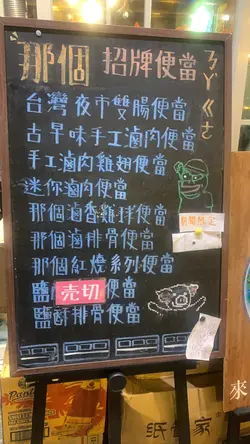 那個 招牌便當 ㄋㄚˋㄍㄜ˙
台灣夜市雙腸便當
古早味手工滷肉便當
手工滷肉雞翅便當
迷你滷肉便當
那個滷香雞球便當
那個滷排骨便當
那個紅燒系列便當
鹽 售切 便當
鹽酥排骨便當
來
纸 家